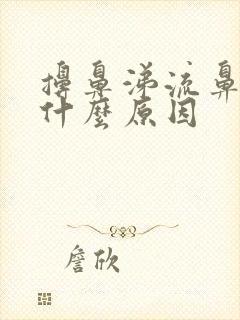 擤鼻涕流鼻
什麼原因
詹欣